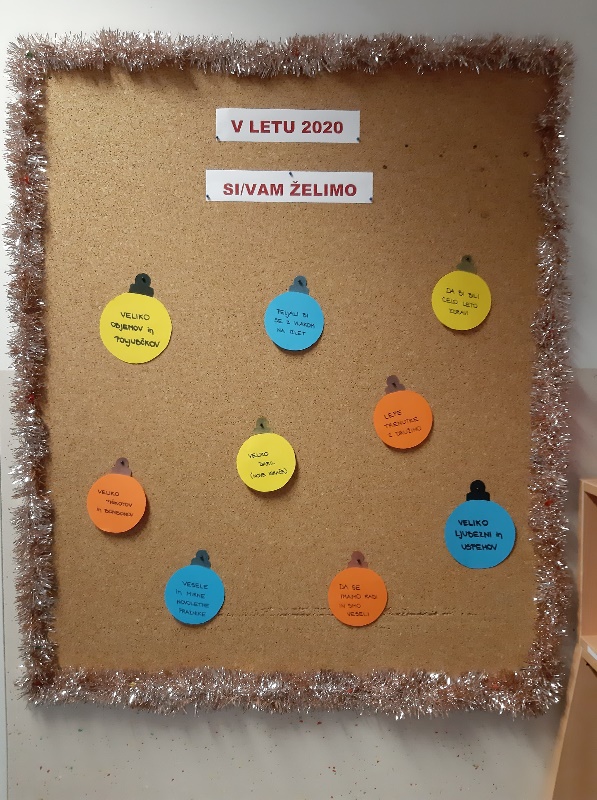 V LETU 2020
SI/VAM ŽELIMO
VELIKO
OBJEMOV in
POLJUBČKOV
PELJALI BI
SE Z VLAKOM
NA IZLET
DA BI BILI
CELO LETO
ZDRAVI
LEPE
TRENUTKE
Z DRUŽINO
VELIKO
DARIL
VELIKO
PIŠKOTOV
in BONBONOV
VELIKO
LJUBEZNI in
USPEHOV
VESELE
in MIRNE
NOVOLETNE
PRAZNIKE
DA SE
IMAMO RADI
IN SMO
VESELI